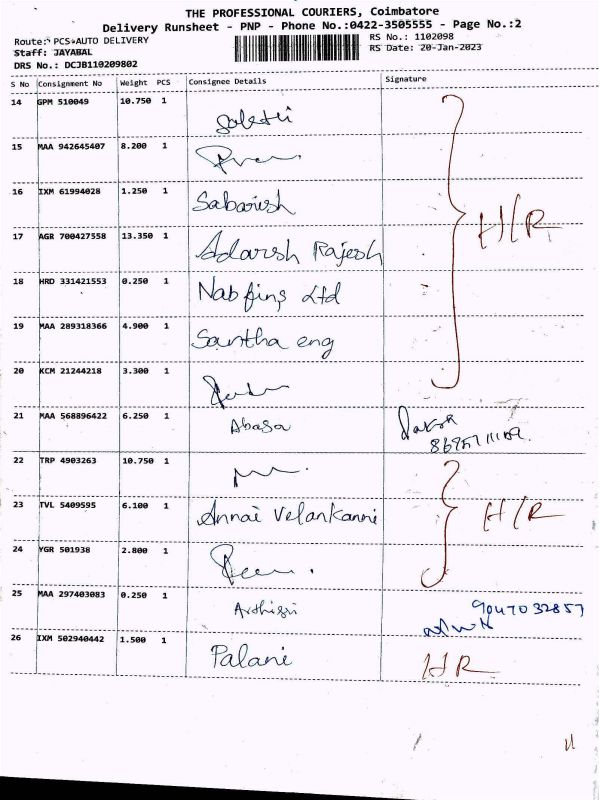 THE PROFESSIONAL COURIERS, Coimbatore
Delivery Runsheet - PNP - Phone No.:0422-3505555 - Page No.:2
Route: PCS-AUTO DELIVERY
RS No.: 1102098
Staff: JAYABAL
RS Date: 20-Jan-2023
DRS No.: DCJB110209802
S No Consignment No Weight PCS Consignee Details Signature
14 GPM 510049 10.750 1
15 MAA 942645407 8.200 1
16 IXM 61994028 1.250 1 Sabarish
H/R
17 AGR 700427558 13.350 1 Adarsh Rajesh
18 HRD 331421553 0.250 1 Nabfins Ltd
19 MAA 289318366 4.900 1 Santha eng
20 KCM 21244218 3.300 1
21 MAA 568896422 6.250 1 Abasa
22 TRP 4903263 10.750 1
23 TVL 5409595 6.100 1 Annai Velankanni H/R
24 YGR 501938 2.800 1
25 MAA 297403083 0.250 1 9047032857
26 IXM 502940442 1.500 1 Palani HR